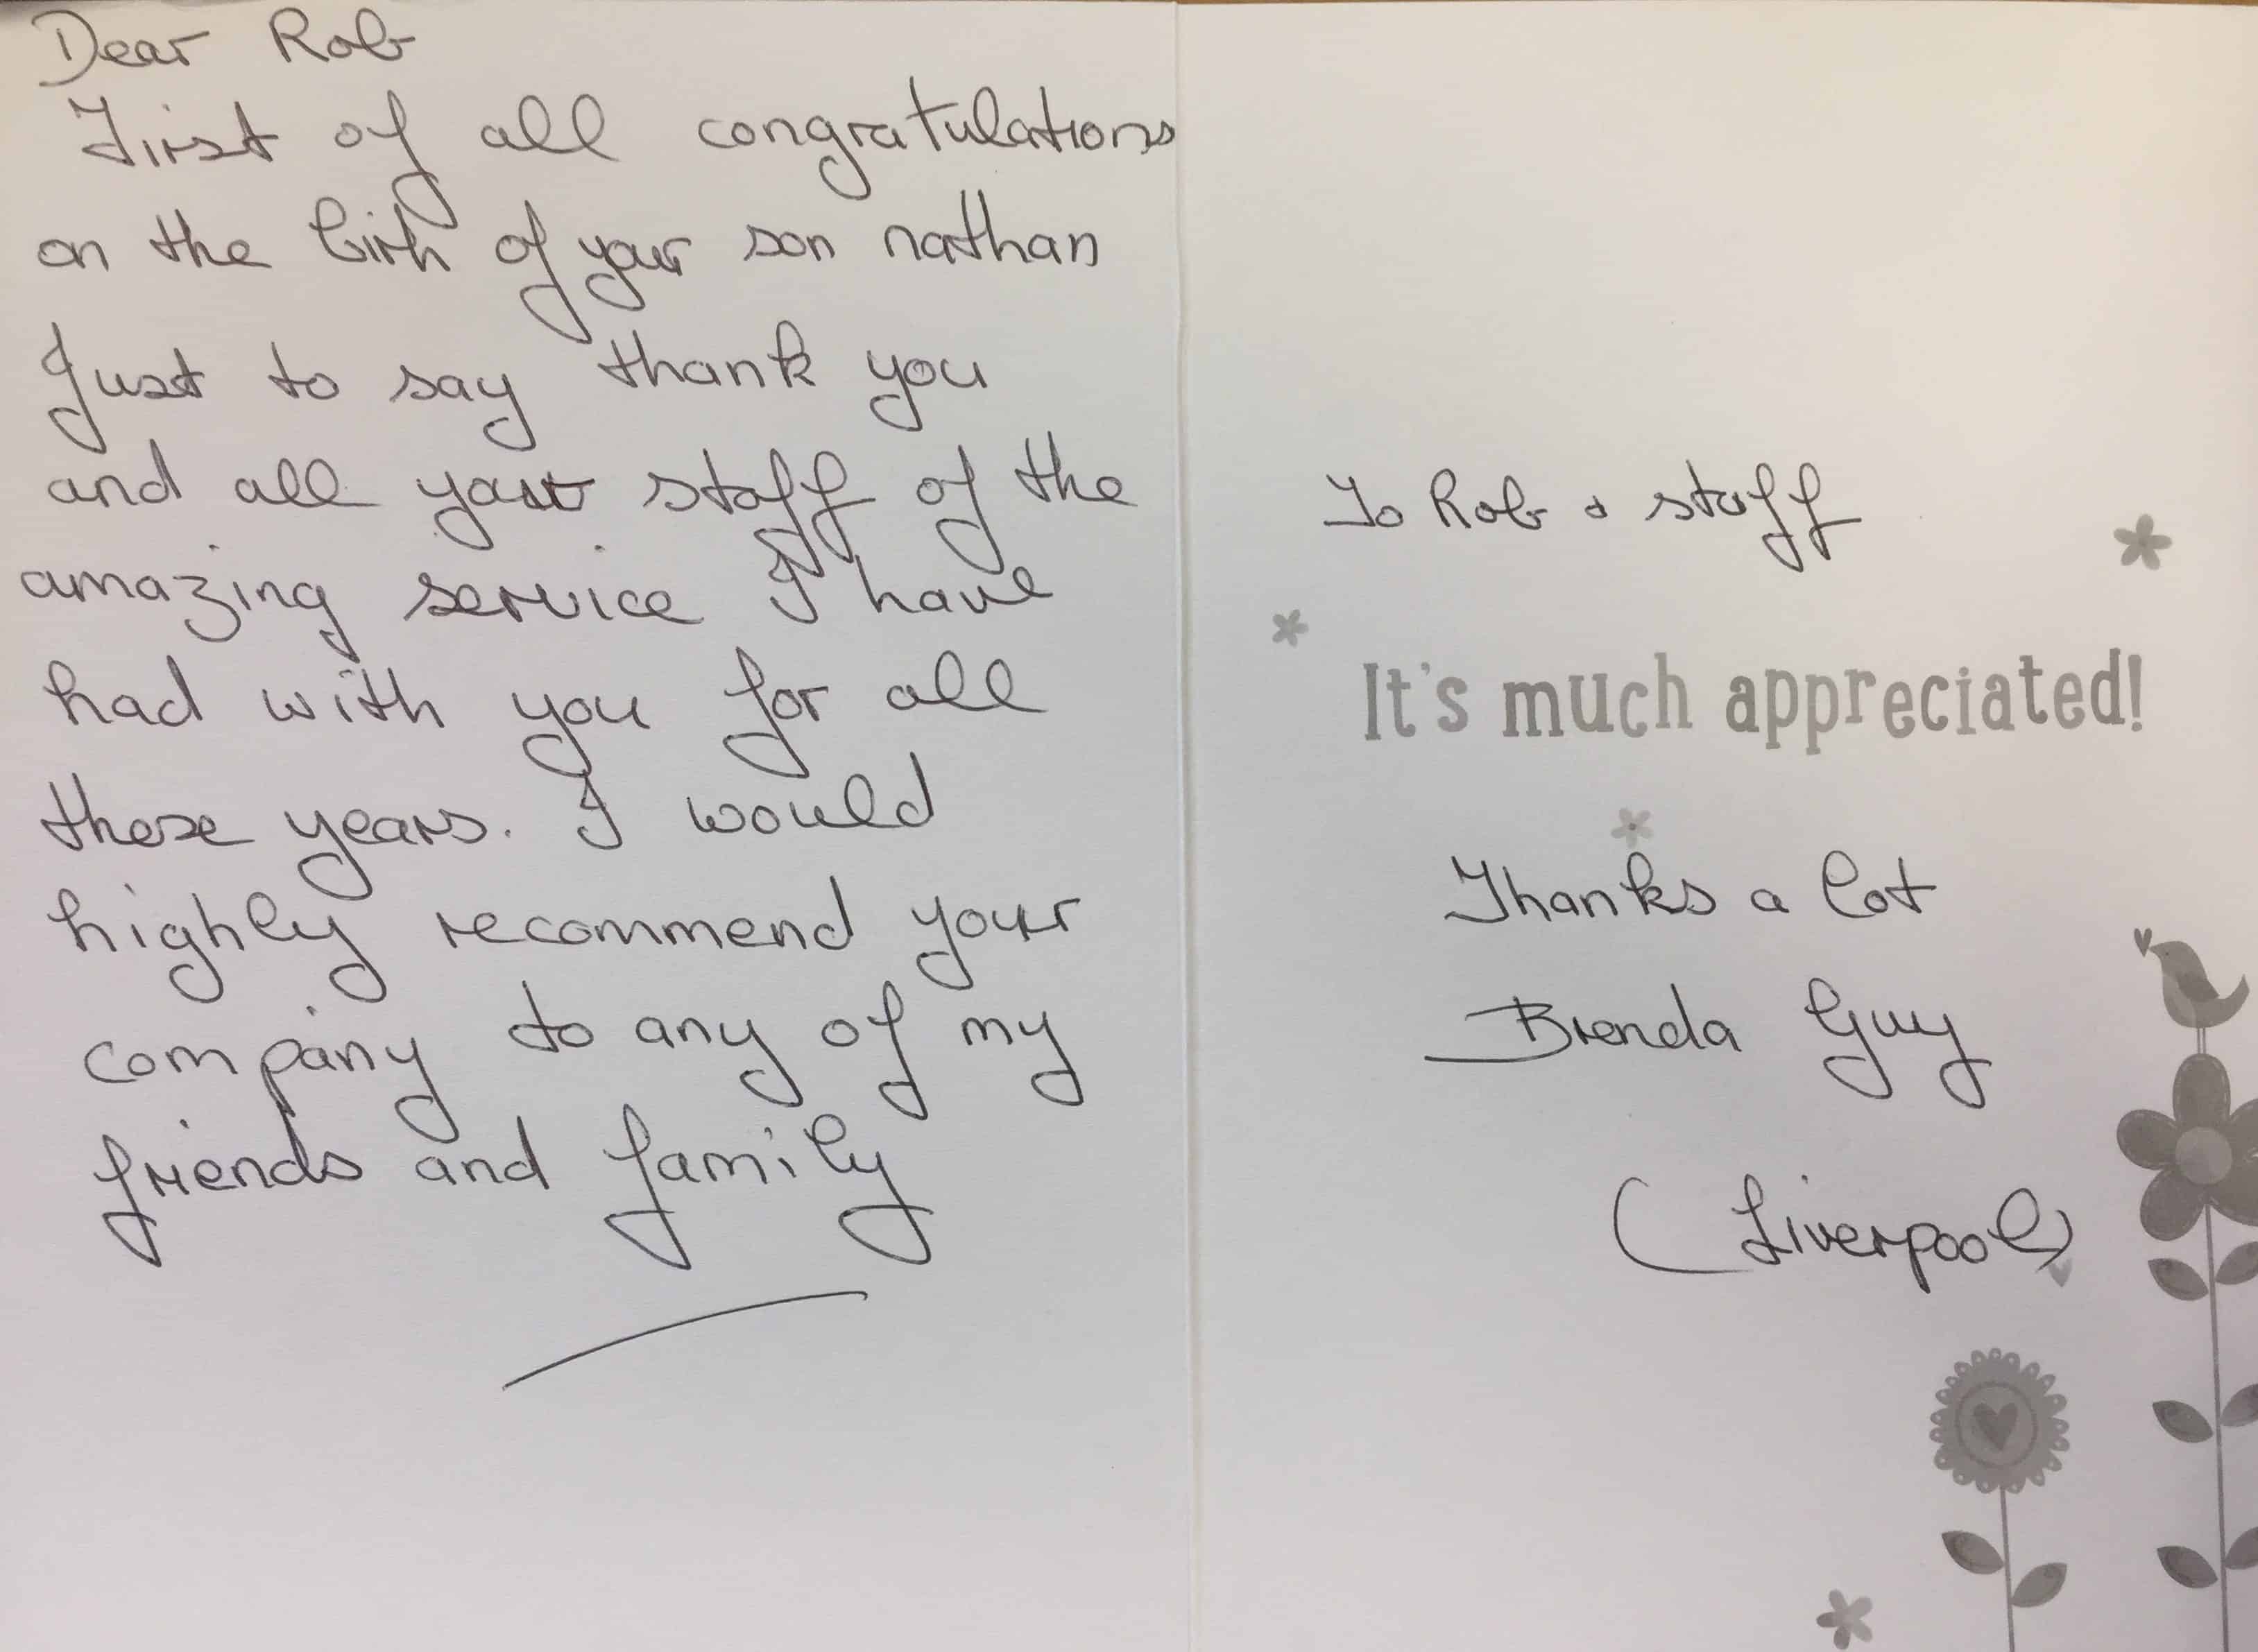 Dear Rob
First of all congratulations
on the birth of your son nathan
Just to say thank you
and all your staff of the
amazing service I have
had with you for all
these years. I would
highly recommend your
company to any of my
friends and family
To Rob & staff
It's much appreciated!
Thanks a lot
Brenda Guy
(Liverpool)